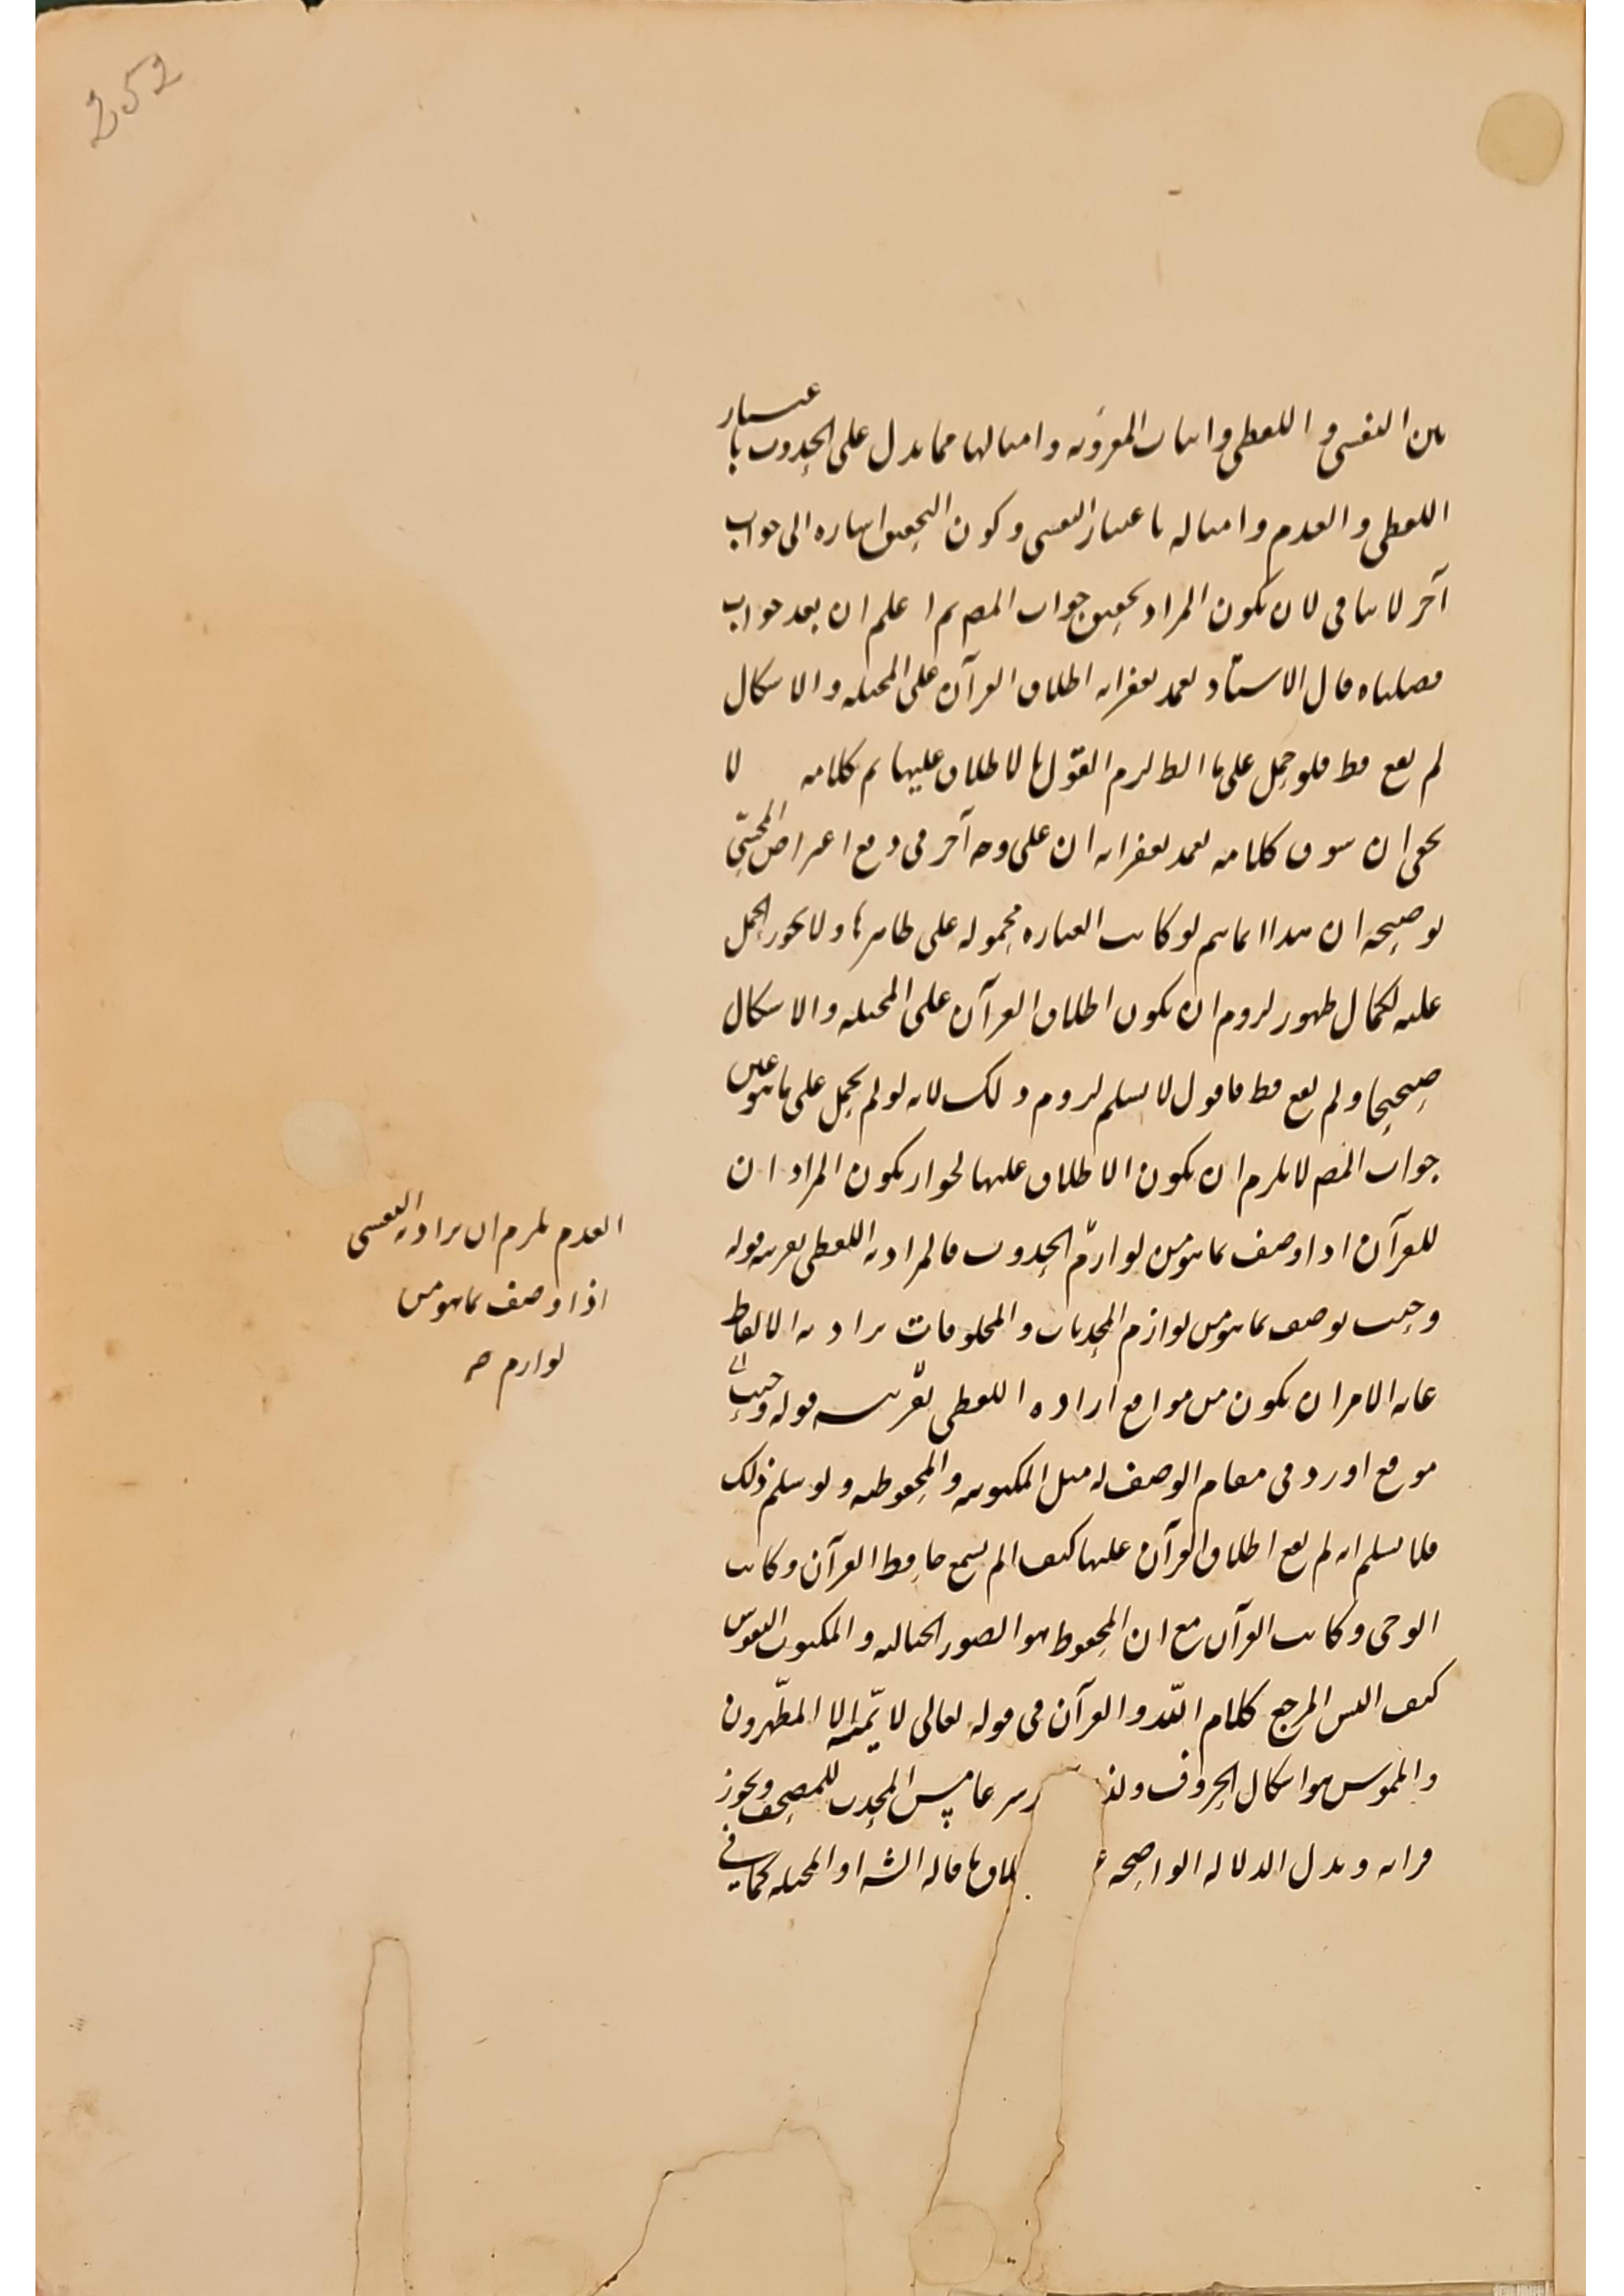 252
بين النفسى و اللفظى واثبات المقروءة وامثالها مما يدل على الحدوث باعتبار
اللفظى و القدم وامثاله باعتبار النفسى وكون التحقيق اشارة الى جواب
آخر لا ينافى لان يكون المراد تحقيق جواب المص ثم اعلم ان بعد جواب
فصلناه قال الاستاد اطلاق القرآن على المخيلة والاشكال
لم يقع قط فلو حمل على لزم القول بالاطلاق عليها تم كلامه لا
يخفى ان سوق كلامه على وجه آخر فى دفع اعتراض المحشى
توضيحه ان هذا انما يتم لو كانت العبارة محمولة على ظاهرها ولا يجوز الحمل
عليه لكمال ظهور لزوم ان يكون اطلاق القرآن على المخيلة والاشكال
صحيحا ولم يقع قط فاقول لا نسلم لزوم ذلك لانه لو لم يحمل على ما هو عين
جواب المص لا يلزم ان يكون الاطلاق عليها لجواز يكون المراد ان
للقرآن اذا وصف بما هو من لوازم الحدوث فالمراد به اللفظى بقرينة قوله
وحيث يوصف بما هو من لوازم المحدثات والمخلوقات يراد به الالفاظ
غاية الامر ان يكون من مواقع ارادة اللفظى بقرينة قوله وحيث
موقع اورد فى مقام الوصف له مثل المكتوبية والمحفوظية ولو سلم ذلك
فلا نسلم انه لم يقع اطلاق القرآن عليها كيف الم يسمع حافظ القرآن وكاتب
الوحى وكاتب القرآن مع ان المحفوظ هو الصور الخيالية والمكتوب النقوش
كيف اليس المرجع كلام الله و القرآن فى قوله تعالى لا يمسه الا المطهرون
والملموس هو اشكال الحروف مس المحدث للمصحف ويجوز
قرائه ويدل الدلالة الواضحة ما قاله الش او المخيلة كما فى
القدم يلزم ان يراد به النفسى
اذا وصف بما هو من
لوازم صح